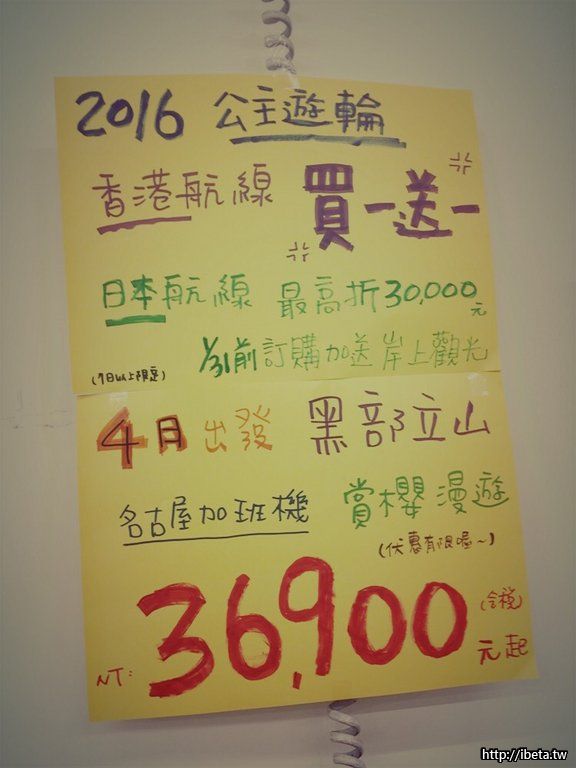 2016 公主遊輪
香港航線 買一送一
日本航線 最高折30,000元
(7日以上限定) 1/31前訂購加送岸上觀光
4月出發 黑部立山
名古屋加班機 賞櫻漫遊
(伏惠有限喔~)
NT: 36,900 (含稅) 元起
http://ibeta.tw